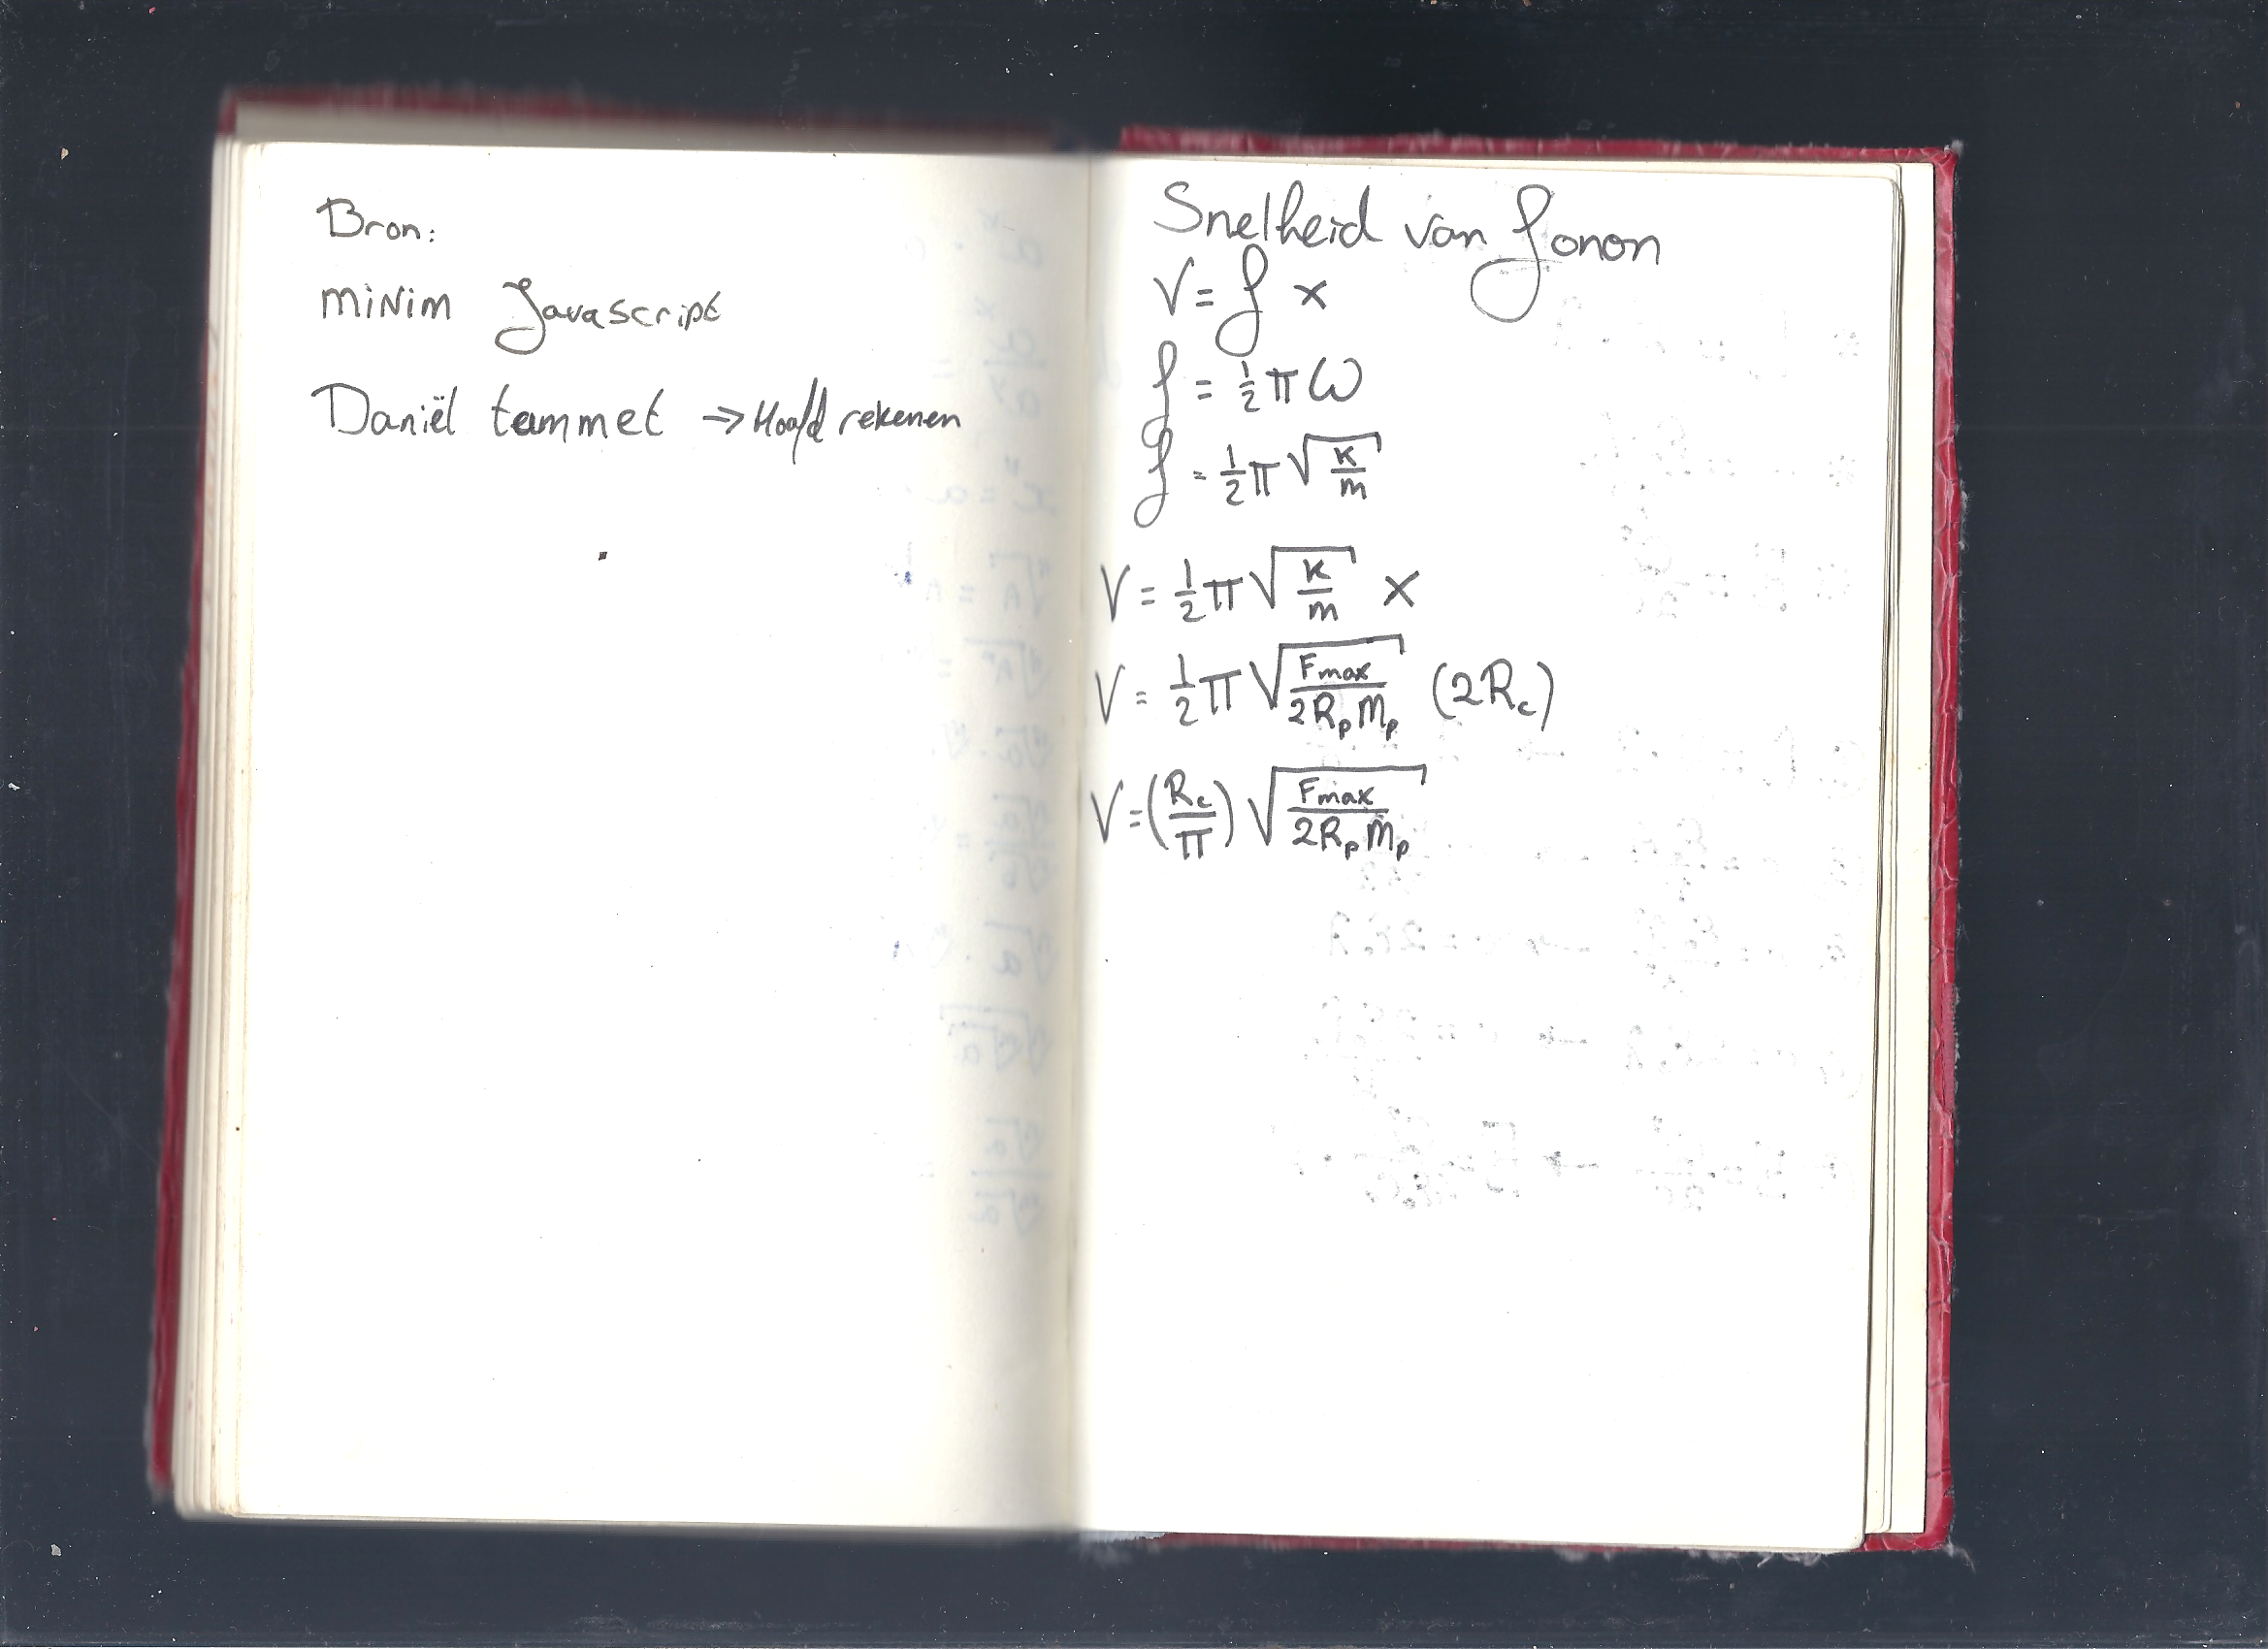 Bron:
MiNiM Javascript
Daniël tammet → Hoofd rekenen
Snelheid van fonon
V = f x
f = ½ π ω
f = ½ π √(K/m)
V = ½ π √(K/m) x
V = ½ π √(Fmax/2RpMp) (2Rc)
V = (Rc/π) √(Fmax/2RpMp)